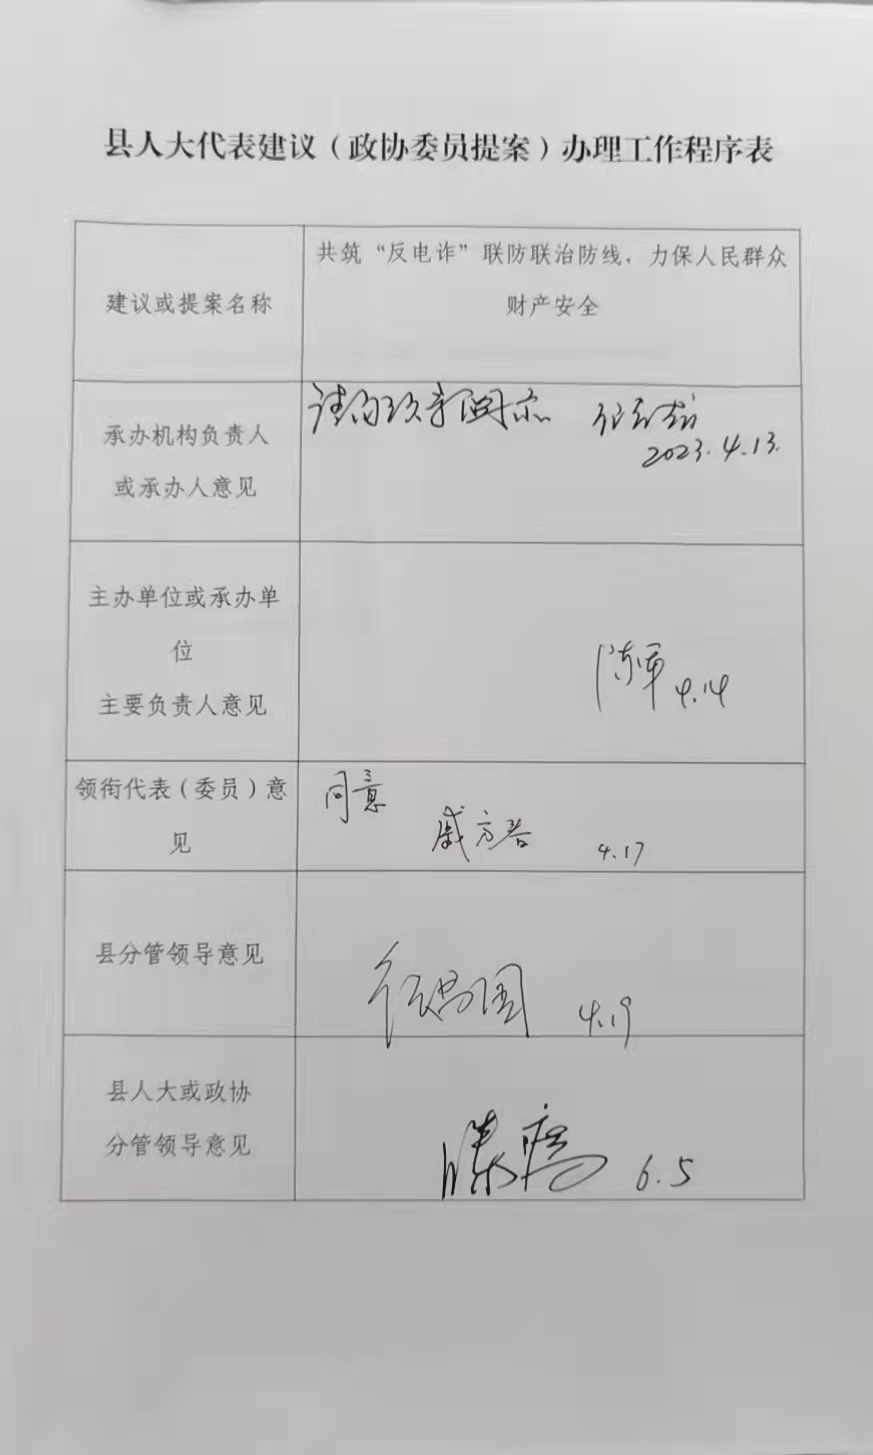 县人大代表建议（政协委员提案）办理工作程序表
建议或提案名称
共筑“反电诈”联防联治防线，力保人民群众
财产安全
承办机构负责人
或承办人意见
2023.4.13.
主办单位或承办单
位
主要负责人意见
陈军 4.14
领衔代表（委员）意
见
同意
戚方 4.17
县分管领导意见
4.19
县人大或政协
分管领导意见
6.5